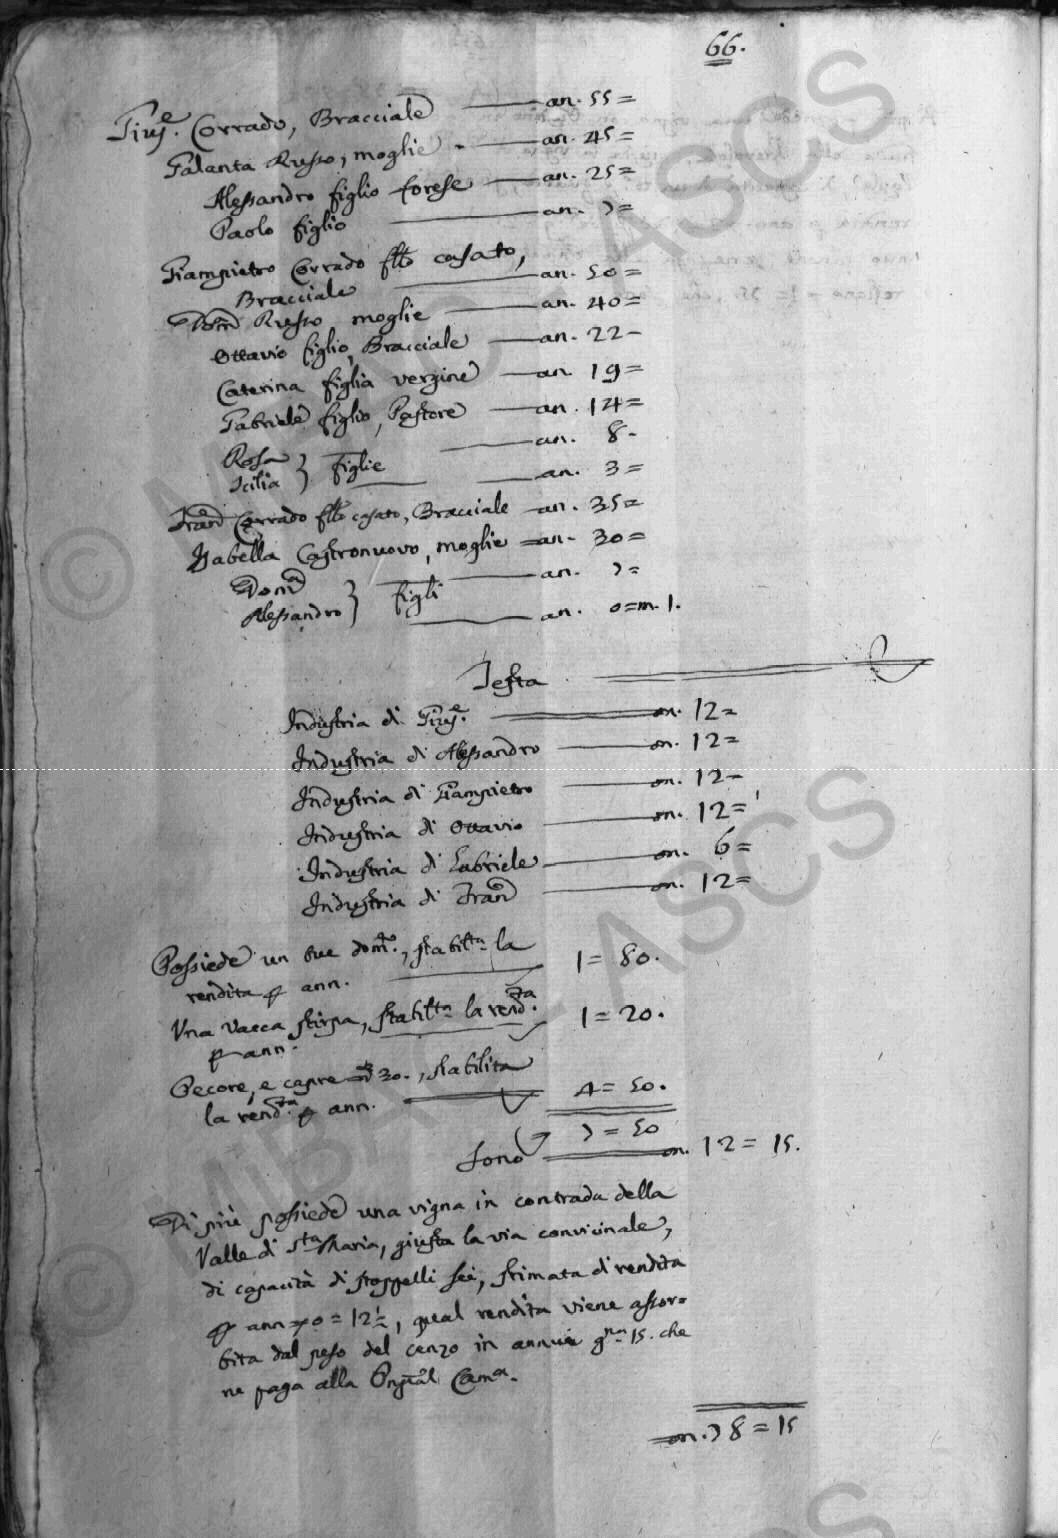 66.
Gius.e Corrado, Bracciale — an. 55=
Galanta Russo, moglie — an. 45=
Alessandro figlio forese — an. 25=
Paolo figlio — an. 7=
Giampietro Corrado f̃llo casato,
Bracciale — an. 50=
Dom.ca Russo moglie — an. 40=
Ottavio figlio, Bracciale — an. 22-
Caterina figlia vergine — an. 19=
Gabriele figlio, Pastore — an. 14=
Rosa } figlie — an. 8-
Icilia — an. 3=
Fran.co Corrado f̃llo casato, Bracciale — an. 35=
Isabella Castronuovo, moglie — an. 30=
Dom.co } figli — an. 7=
Alessandro — an. 0=m. 1.
Testa
Industria di Gius.e — on. 12=
Industria di Alessandro — on. 12=
Industria di Giampietro — on. 12-
Industria di Ottavio — on. 12=
Industria di Gabriele — on. 6=
Industria di Fran.co — on. 12=
Possiede un bue dom.to, stabilta la
rendita p ann. — 1= 80.
Una vacca stirpa, stabilta la rend.ta
p ann. — 1=20.
Pecore, e capre n.o 30., stabilita
la rend.ta p ann. — 4=50.
7=50
Sono — on. 12= 15.
Di più possiede una vigna in contrada della
Valle di Sta Maria, giusta la via convicinale,
di capacità di stoppelli sei, stimata di rendita
p ann 0=12½, qual rendita viene assor=
bita dal peso del cenzo in annui gna 15. che
ne paga alla Cam.a.
on. 78=15
© MIBAC - ASCS
© MIBAC - ASCS